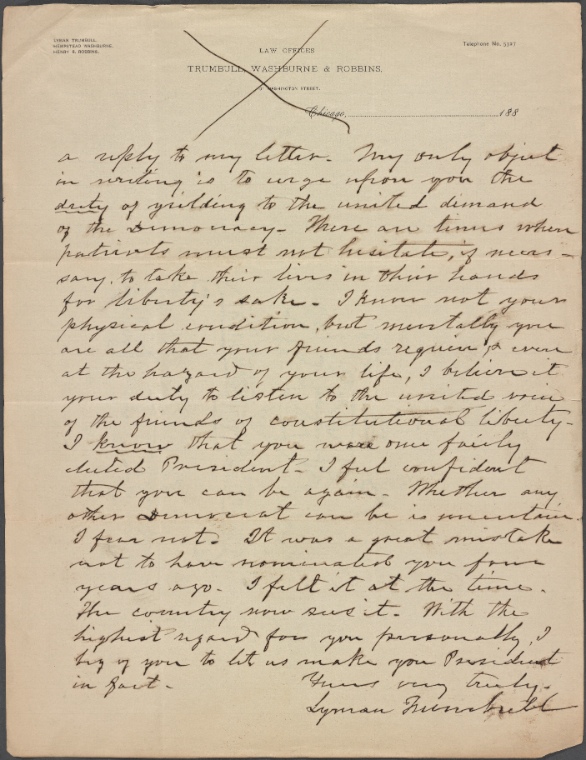 LYMAN TRUMBULL.
HEMPSTEAD WASHBURNE.
HENRY S. ROBBINS.
TELEPHONE No. 5321
LAW OFFICES
TRUMBULL, WASHBURNE & ROBBINS.
WASHINGTON STREET.
Chicago, 188
a reply to my letter. My only object
in writing is to urge upon you the
duty of yielding to the united demand
of the Democracy. There are times when
patriots must not hesitate, if neces-
sary, to take their lives in their hands
for liberty's sake. I know not your
physical condition, but mentally you
are all that your friends require, & even
at the hazard of your life, I believe it
your duty to listen to the united voice
of the friends of constitutional liberty.
I know that you were once fairly
elected President. I feel confident
that you can be again. Whether any
other Democrat can be is uncertain.
I fear not. It was a great mistake
not to have nominated you four
years ago. I felt it at the time.
The country now sees it. With the
highest regard for you personally, I
beg of you to let us make you President
in fact.
Yours very truly.
Lyman Trumbull